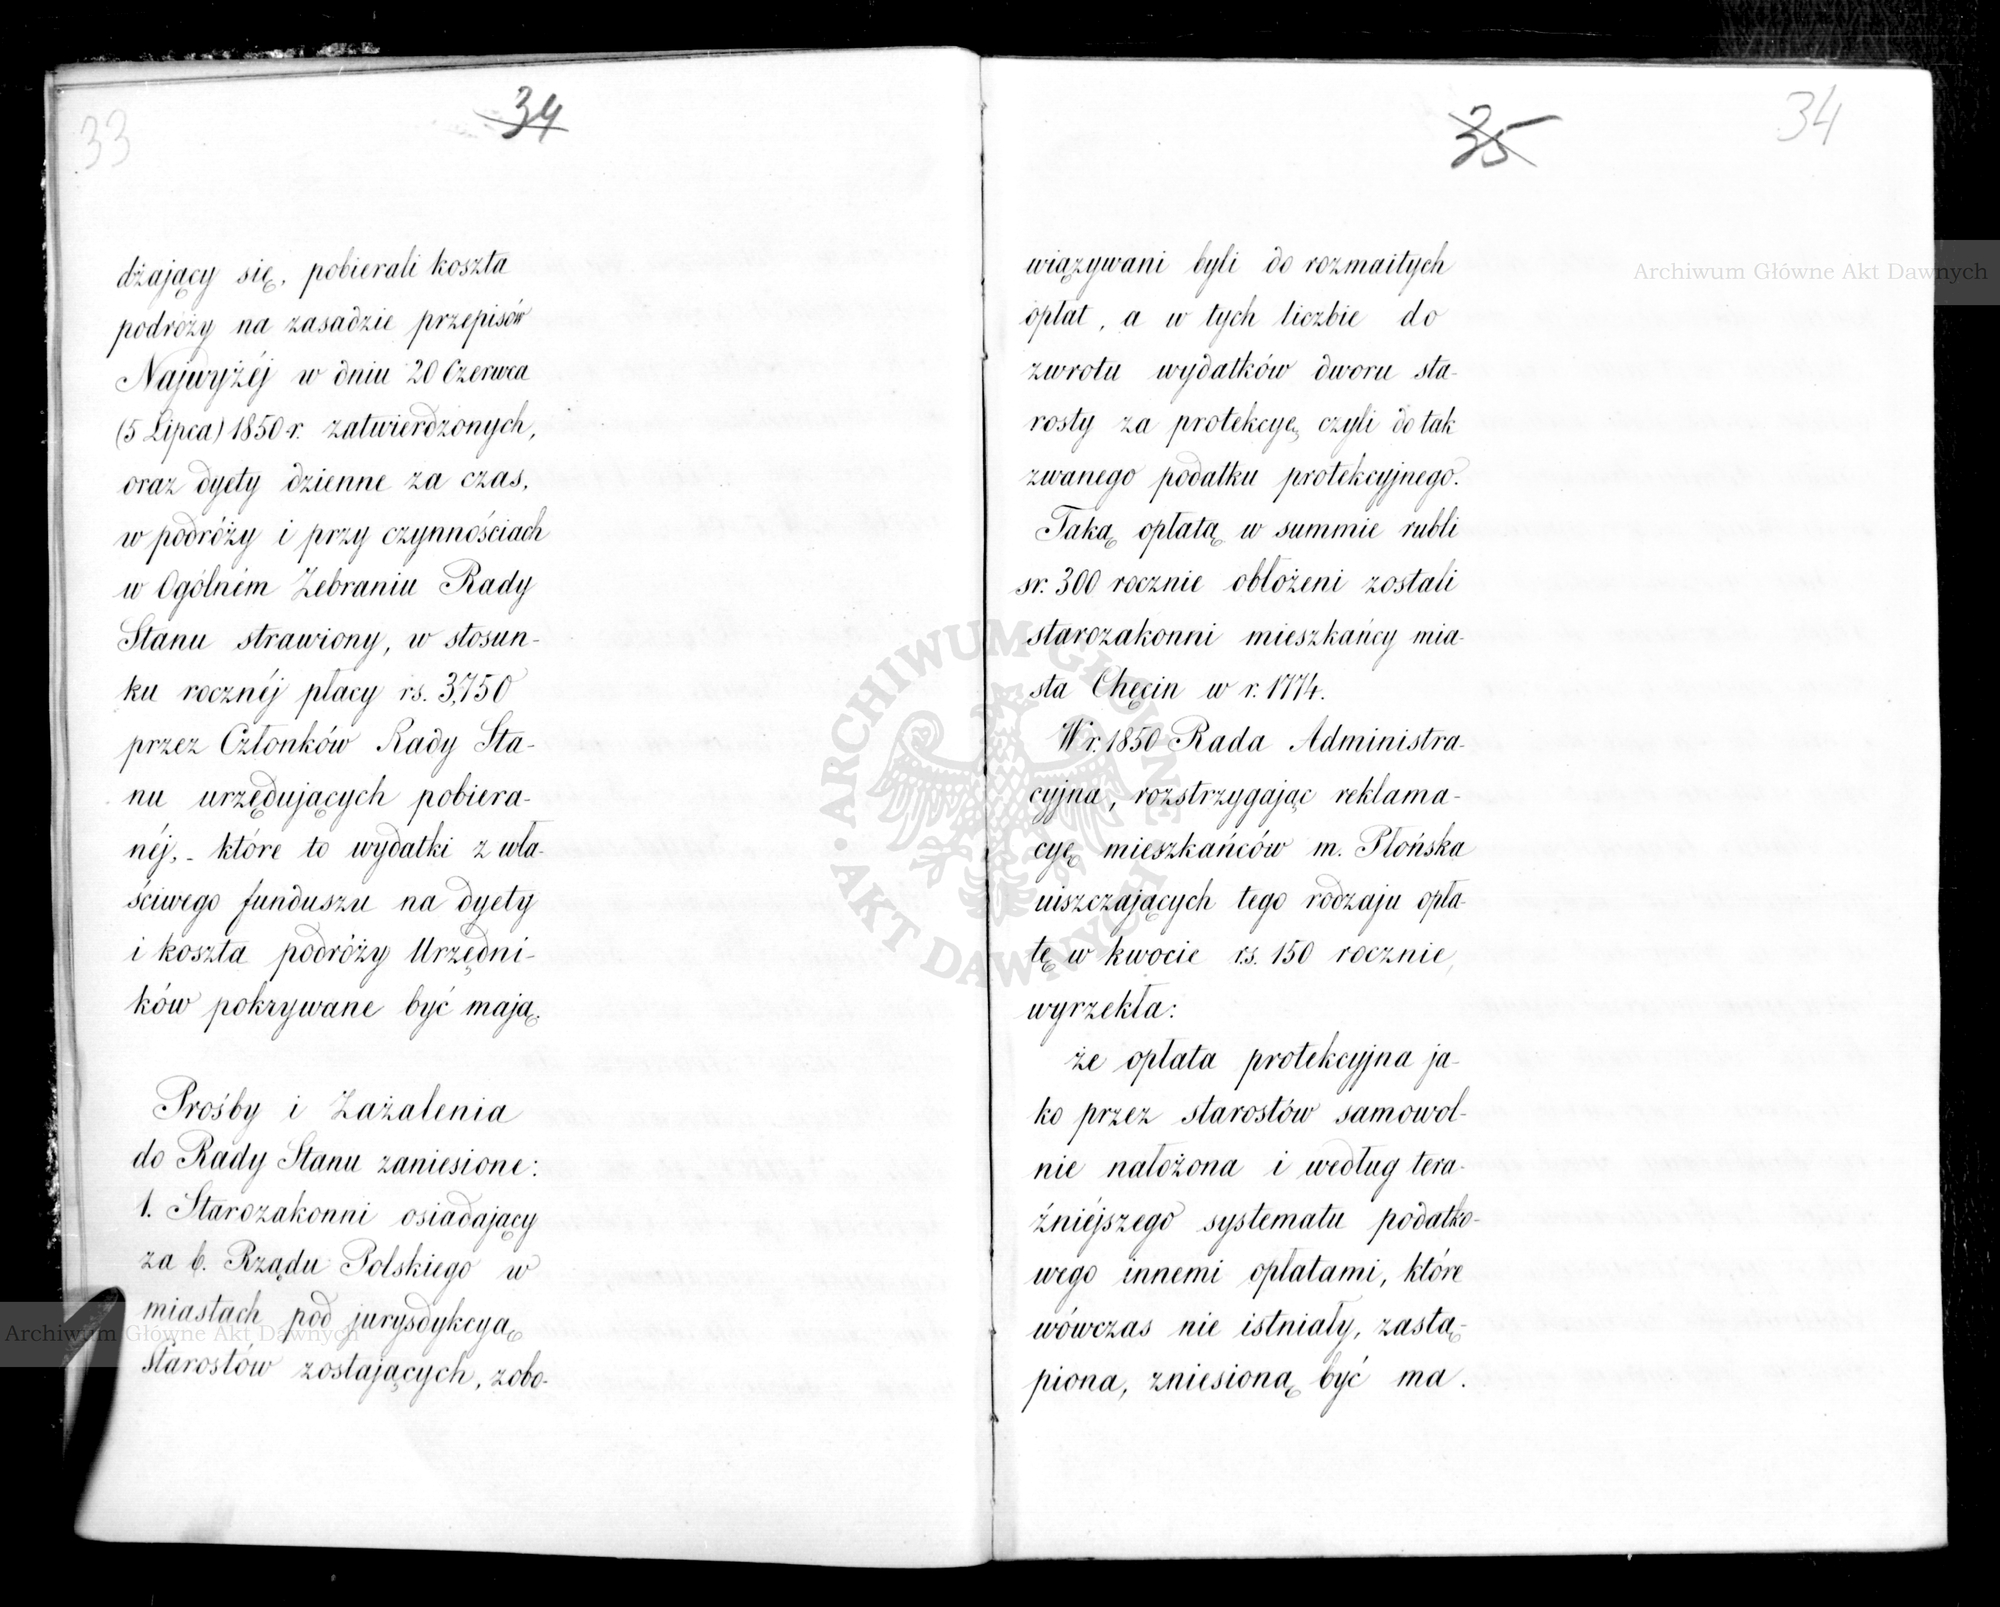 33
34
dżający się, pobierali koszta
podróży na zasadzie przepisów
Najwyżéj w dniu 20 Czerwca
(5 Lipca) 1850 r. zatwierdzonych,
oraz dyety dzienne za czas,
w podróży i przy czynnościach
w Ogólném Zebraniu Rady
Stanu strawiony, w stosun-
ku rocznéj płacy rs. 3,750
przez Członków Rady Sta-
nu urzędujących pobiera-
néj, - które to wydatki z wła
ściwego funduszu na dyety
i koszta podróży Urzędni-
ków pokrywane być mają.
Prośby i Zażalenia
do Rady Stanu zaniesione:
1. Starozakonni osiadający
za b. Rządu Polskiego w
miastach pod jurysdykcyą
Starostów zostających, zobo-
35
34
wiązywani byli do rozmaitych
opłat, a w tych liczbie do
zwrotu wydatków dworu sta-
rosty za protekcyę, czyli do tak
zwanego podatku protekcyjnego.
Taką opłatą w summie rubli
sr. 300 rocznie obłożeni zostali
starozakonni mieszkańcy mia-
sta Chęcin w r. 1774.
W r. 1850 Rada Administra-
cyjna, rozstrzygając reklama-
cyę mieszkańców m. Płońska
uiszczających tego rodzaju opła-
tę w kwocie rs. 150 rocznie,
wyrzekła:
że opłata protekcyjna ja-
ko przez starostów samowol-
nie nałożona i według tera-
źniéjszego systematu podatko-
wego innemi opłatami, które
wówczas nie istniały, zastą-
piona, zniesioną być ma.
Archiwum Główne Akt Dawnych
Archiwum Główne Akt Dawnych
ARCHIWUM GŁÓWNE · AKT DAWNYCH ·